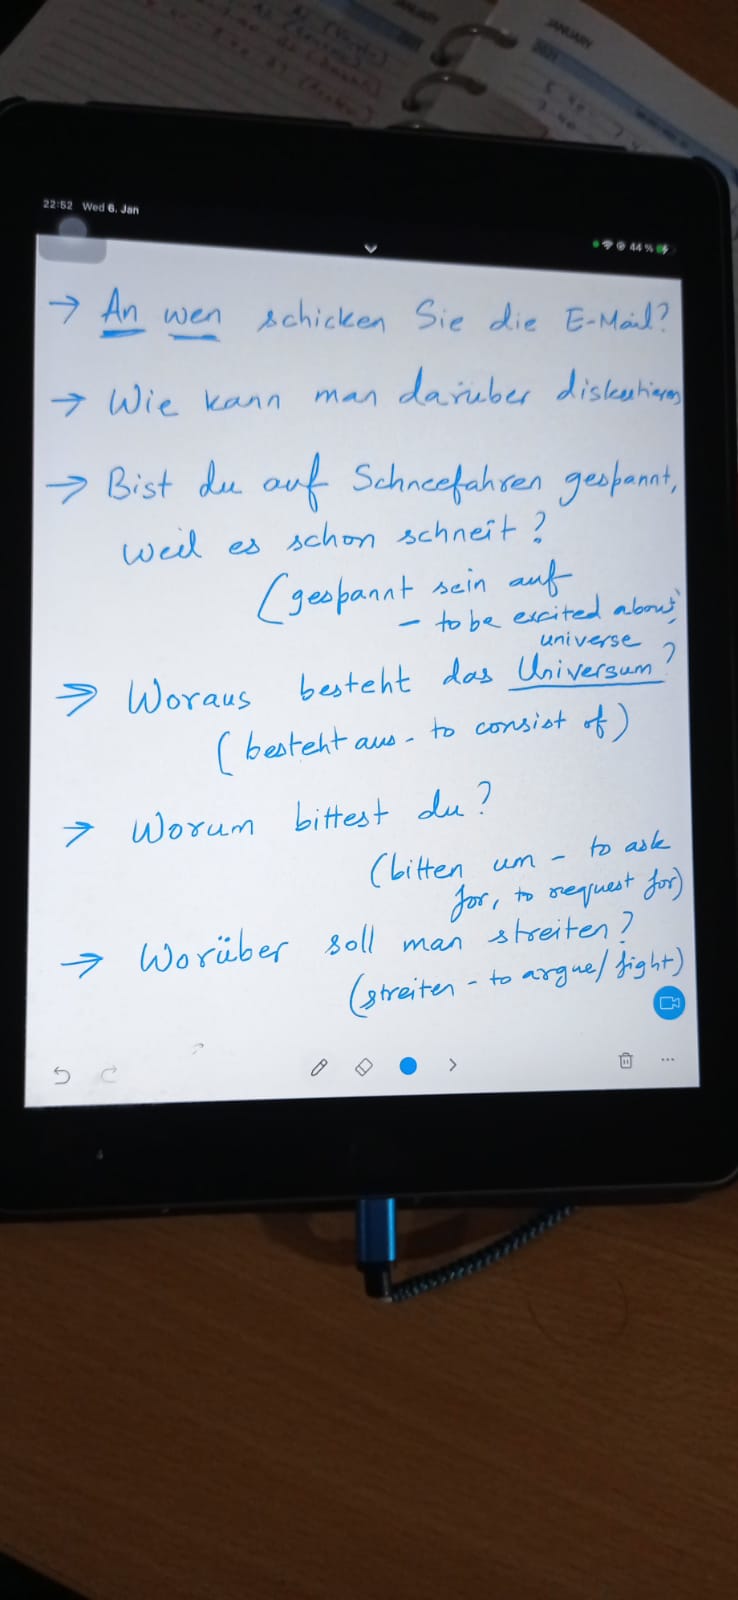 JANUARY
JANUARY
2021
22:52 Wed 6. Jan
44 %
→ An wen schicken Sie die E-Mail?
→ Wie kann man darüber diskutieren
→ Bist du auf Schneefahren gespannt,
weil es schon schneit?
(gespannt sein auf
- to be excited about)
universe
→ Woraus besteht das Universum?
(besteht aus - to consist of)
→ Worum bittest du?
(bitten um - to ask
for, to request for)
→ Worüber soll man streiten?
(streiten - to argue/fight)